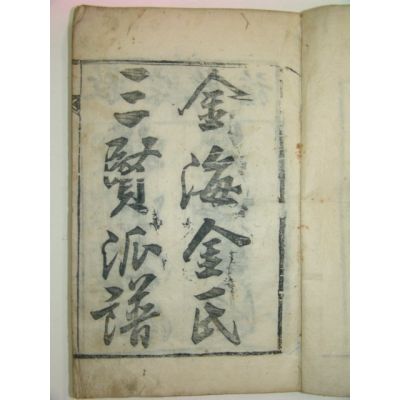 金海金氏
三賢派譜